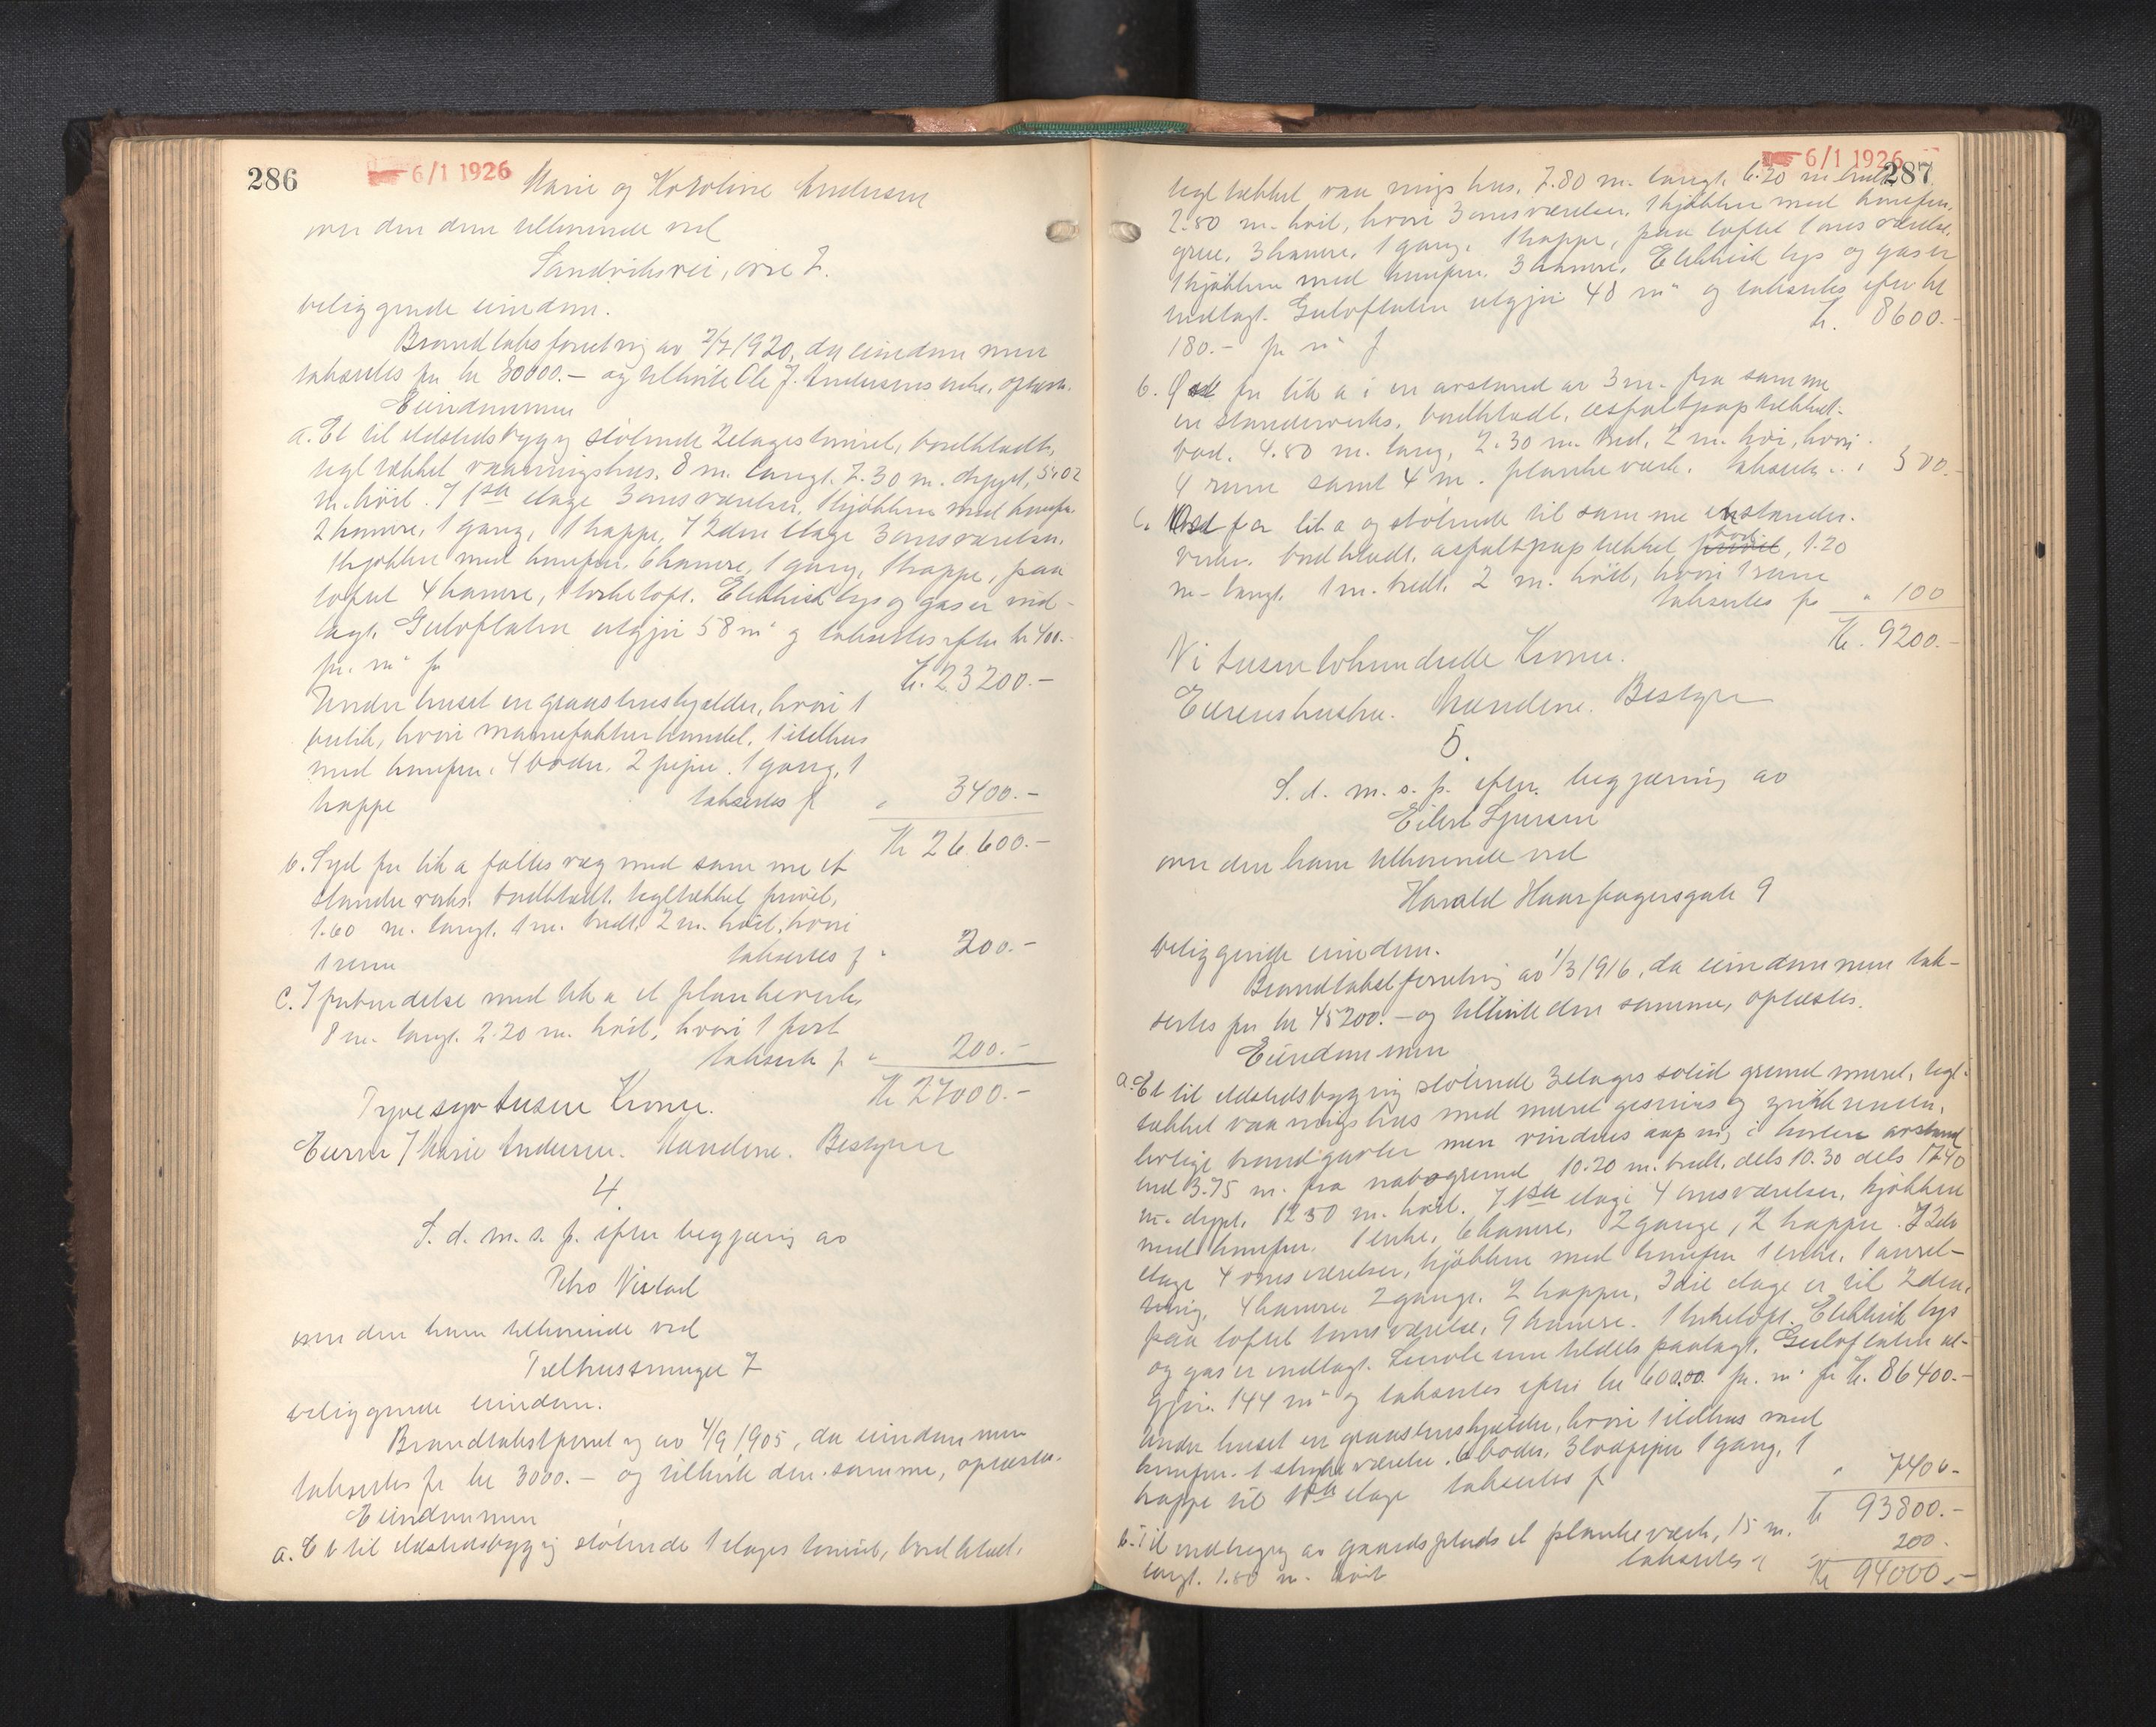 286
6/1 1926
Marie og Karoline Andersen
over den dem tilhørende ved
Sandviksvei, øvre 7.
beliggende eiendom.
Brandtaksforretning av 2/7 1920, da eiendommen
taksertes for kr 30000.- og tilhørte Ole J. Andersens enke, oplæst.
Eiendommen
a. Et til ildstedsbygg støtende 2etages tømret, bordklædt,
tegltækket vaaningshus. 8 m. langt. 7.30 m. dypt, 5 à 02
m. høit. I 1ste etage 3 onsværelser, 1 kjøkken med komfur.
2 kamre, 1 gang, 1 trappe, I 2den etage 3 onsværelser.
1 kjøkken med komfur. 6 kamre, 1 gang, 1 trappe, paa
loftet 4 kamre, 1 tørkeloft. Elektrisk lys og gas er ind-
lagt. Gulvflaten utgjør 58 m² og taksertes efter kr 400.-
pr. m² for
Kr. 23200.-
Under huset en graastenskjælder, hvori 1
butik, hvori manufakturhandel. 1 ildhus
med komfur. 4 boder. 2 piper. 1 gang, 1
trappe taksertes for " 3400.-
Kr 26.600.-
b. Syd for lit a fælles væg med samme et
standerverks. bordklædt. tegltækket privet,
1.60 m. langt. 1 m. bredt. 2 m. høit, hvori
1 rum taksertes for " 200.-
c. I forbindelse med lit a et plankeverk,
8 m. langt. 2.20 m. høit, hvori 1 port
taksert for " 200.-
Kr 27000.-
Tyvesyv tusen Kroner.
Eieren / Marie Andersen. Mændene. Bestyrer
4.
S. d. m. s. p. efter begjæring av
Petro Vistad
over den ham tilhørende ved
Tælhussmuget 7
beliggende eiendom.
Brandtakstforretng av 4/9 1905, da eiendommen
taksertes for kr 3000.- og tilhørte den samme, oplæstes.
Eiendommen
a. Et til ildstedsbygg støtende 1 etages tømret, bordklædt,
6/1 1926
287
tegltækket vaaningshus. 7.80 m. langt. 6.20 m bredt.
2.80 m. høit, hvori 3 onsværelser, 1 kjøkken med komfur.
grue, 3 kamre, 1 gang. 1 trappe, paa loftet 1 onsværelse.
1 kjøkken med komfur. 3 kamre. Elektrisk lys og gas er
indlagt. Gulvflaten utgjør 48 m² og taksertes efter kr
180.- pr m² for
Kr. 8600.-
b. Øst for lit a i en avstand av 3 m. fra samme
en standerverks. bordklædt. asfaltpaptækket
bod. 4.80 m. lang, 2.30 m. bred, 2 m. høi, hvori
4 rum samt 4 m. plankeverk. taksertes " 500.-
c. Øst for lit a og støtende til samme en stander-
verks. bordklædt, asfaltpaptækket privet, 1.20
bod
m. langt. 1 m. bredt. 2 m. høit, hvori 1 rum
taksertes for " 100
Kr. 9200.-
Ni tusen tohundrede Kroner.
Eierens hustru. Mændene. Bestyrer
5.
S. d. m. s. p. efter begjæring av
Eilert Sjursen
over den ham tilhørende ved
Harald Haarfagersgate 9
beliggende eiendom.
Brandtakstforretning av 1/3 1916, da eiendommen tak-
sertes for kr 45200.- og tilhørte den samme, oplæstes.
Eiendommen
a. Et til ildstedsbygg støtende 3etages solid grundmuret, tegl-
tækket vaaningshus med muret gesims og
lovlige brandgavler men vindues aapning i kortere avstand
end 3.75 m. fra nabogrund 10.20 m. bredt. dels 10.30 dels 12.40
m. dypt. 12.30 m. høit. I 1ste etage 4 onsværelser, kjøkken
med komfur. 1 entre, 6 kamre, 2 gange, 2 trapper. I 2den
etage 4 onsværelser, kjøkken med komfur 1 entre, 1 anret-
ning, 4 kamre 2 gange. 2 trapper, 3die etage er lik 2den.
paa loftet 1 onsværelse, 9 kamre. 1 tørkeloft. Elektrisk lys
og gas er indlagt. Linoleum tildels paalagt. Gulvflaten ut-
gjør. 144 m² og taksertes efter kr 600.00 pr. m² for Kr. 86400.-
Under huset en graastenskjælder, hvori 1 ildhus med
komfur. 1 stryke værelse. 6 boder. 3 lodpiper 1 gang, 1
trappe til 1ste etage taksertes for " 7400-
Kr 93800.-
b. Til indhegng av gaardsplads et plankeverk, 15 m.
langt. 1.80 m. høit taksertes for " 200.-
Kr 94000.-